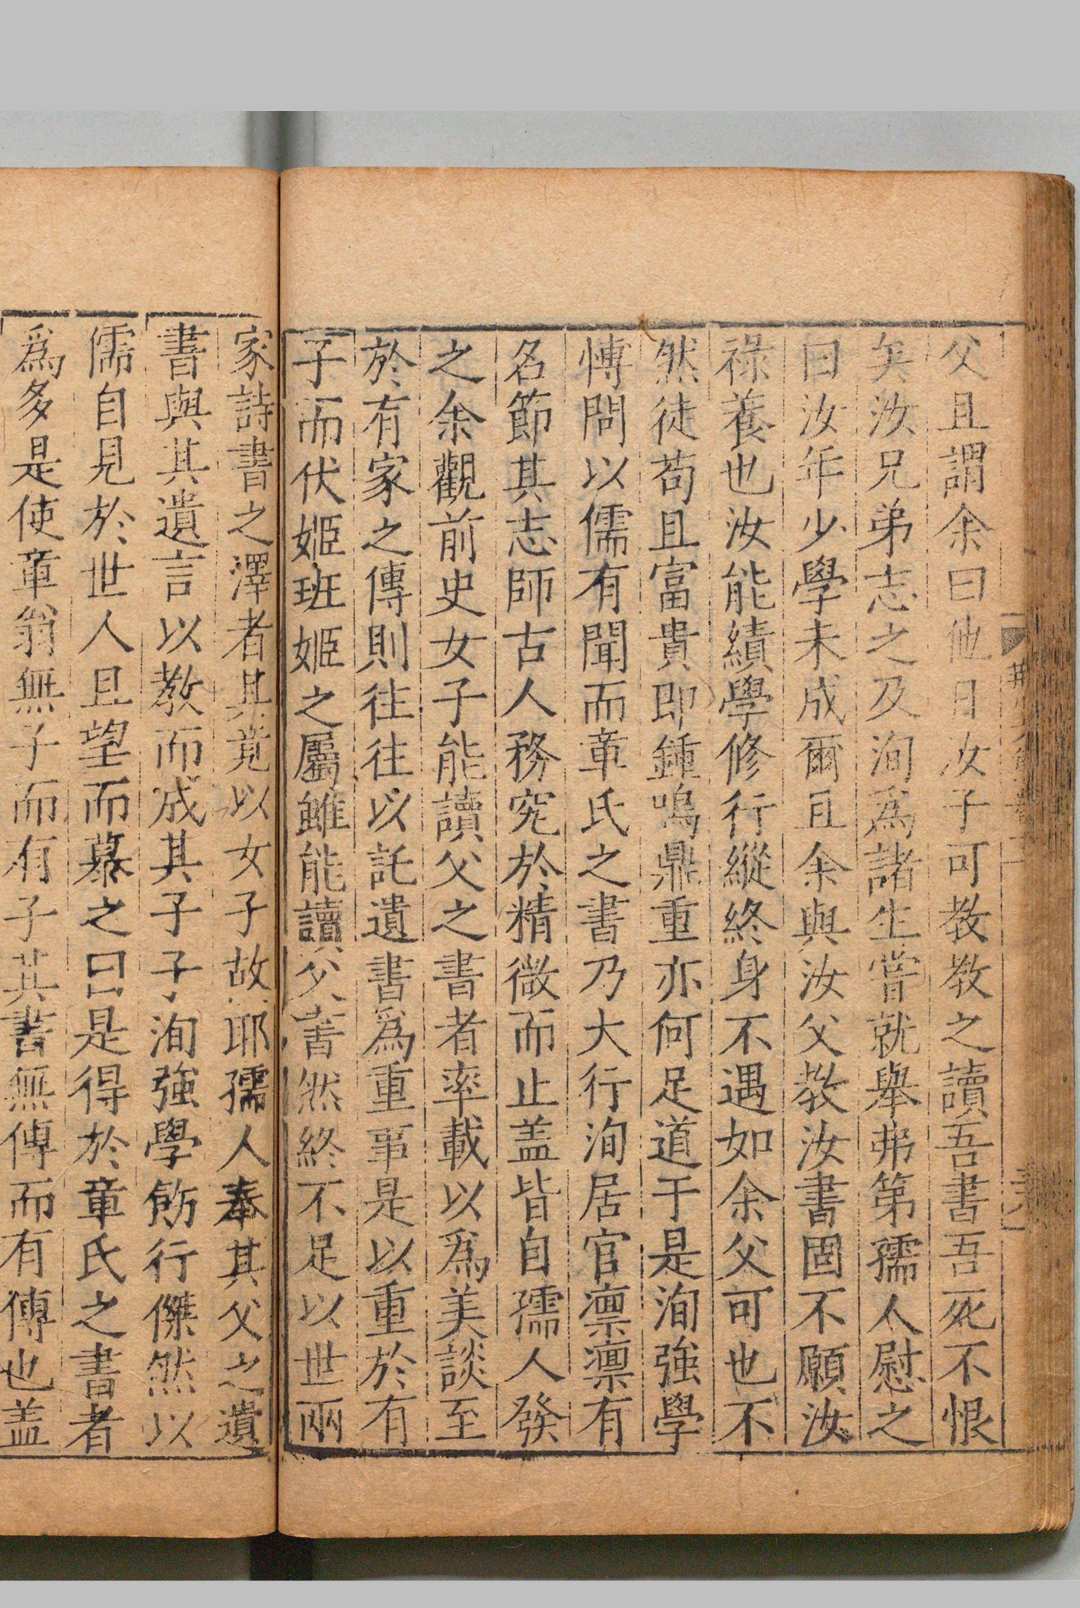 父且謂余曰他日汝子可教教之讀吾書吾死不恨
矣汝兄弟志之及洵爲諸生嘗就舉弗第孺人慰之
曰汝年少學未成爾且余與汝父教汝書固不願汝
祿養也汝能績學修行縱終身不遇如余父可也不
然徒苟且富貴即鍾鳴鼎重亦何足道于是洵強學
慱問以儒有聞而章氏之書乃大行洵居官凛凛有
名節其志師古人務究於精微而止盖皆自孺人發
之余觀前史女子能讀父之書者率載以爲美談至
於有家之傳則往往以託遺書爲重事是以重於有
子而伏姬班姬之屬雖能讀父書然終不足以世兩
家詩書之澤者其竟以女子故耶孺人奉其父之遺
書與其遺言以教而成其子子洵強學飭行傑然以
儒自見於世人且望而慕之曰是得於章氏之書者
爲多是使章翁無子而有子其書無傳而有傳也盖